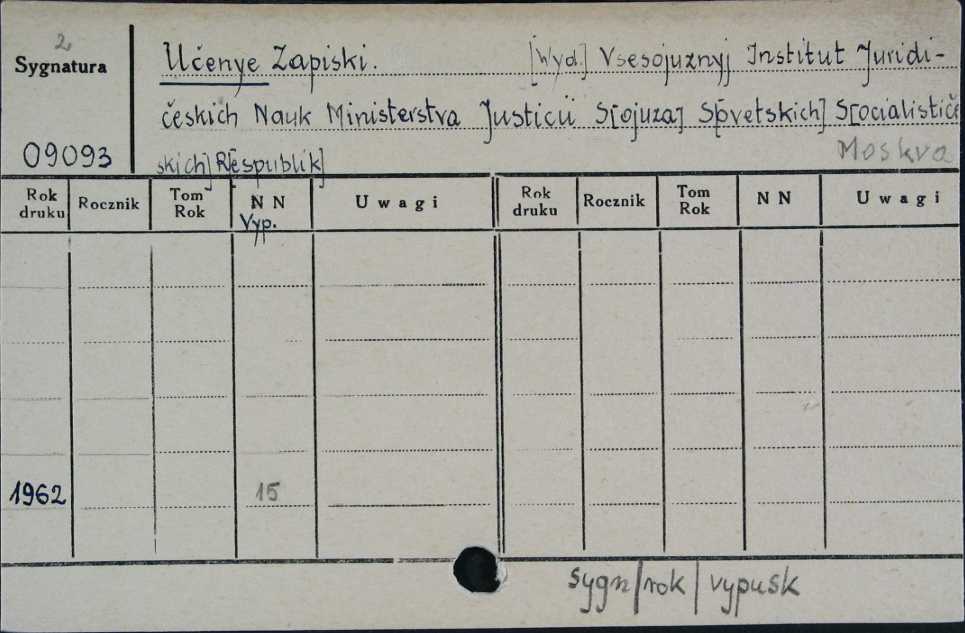 2
Sygnatura
Učenye Zapiski. [Wyd.] Vsesojuznyj Institut Juridi-
českich Nauk Ministerstva Justicii S[ojuza] S[ovetskich] S[ocialističe
09093
skich] R[espublik]
Moskva
Rok druku Rocznik Tom Rok NN Uwagi Rok druku Rocznik Tom Rok NN Uwagi
Vyp.
1962 15
sygn/rok/vypusk